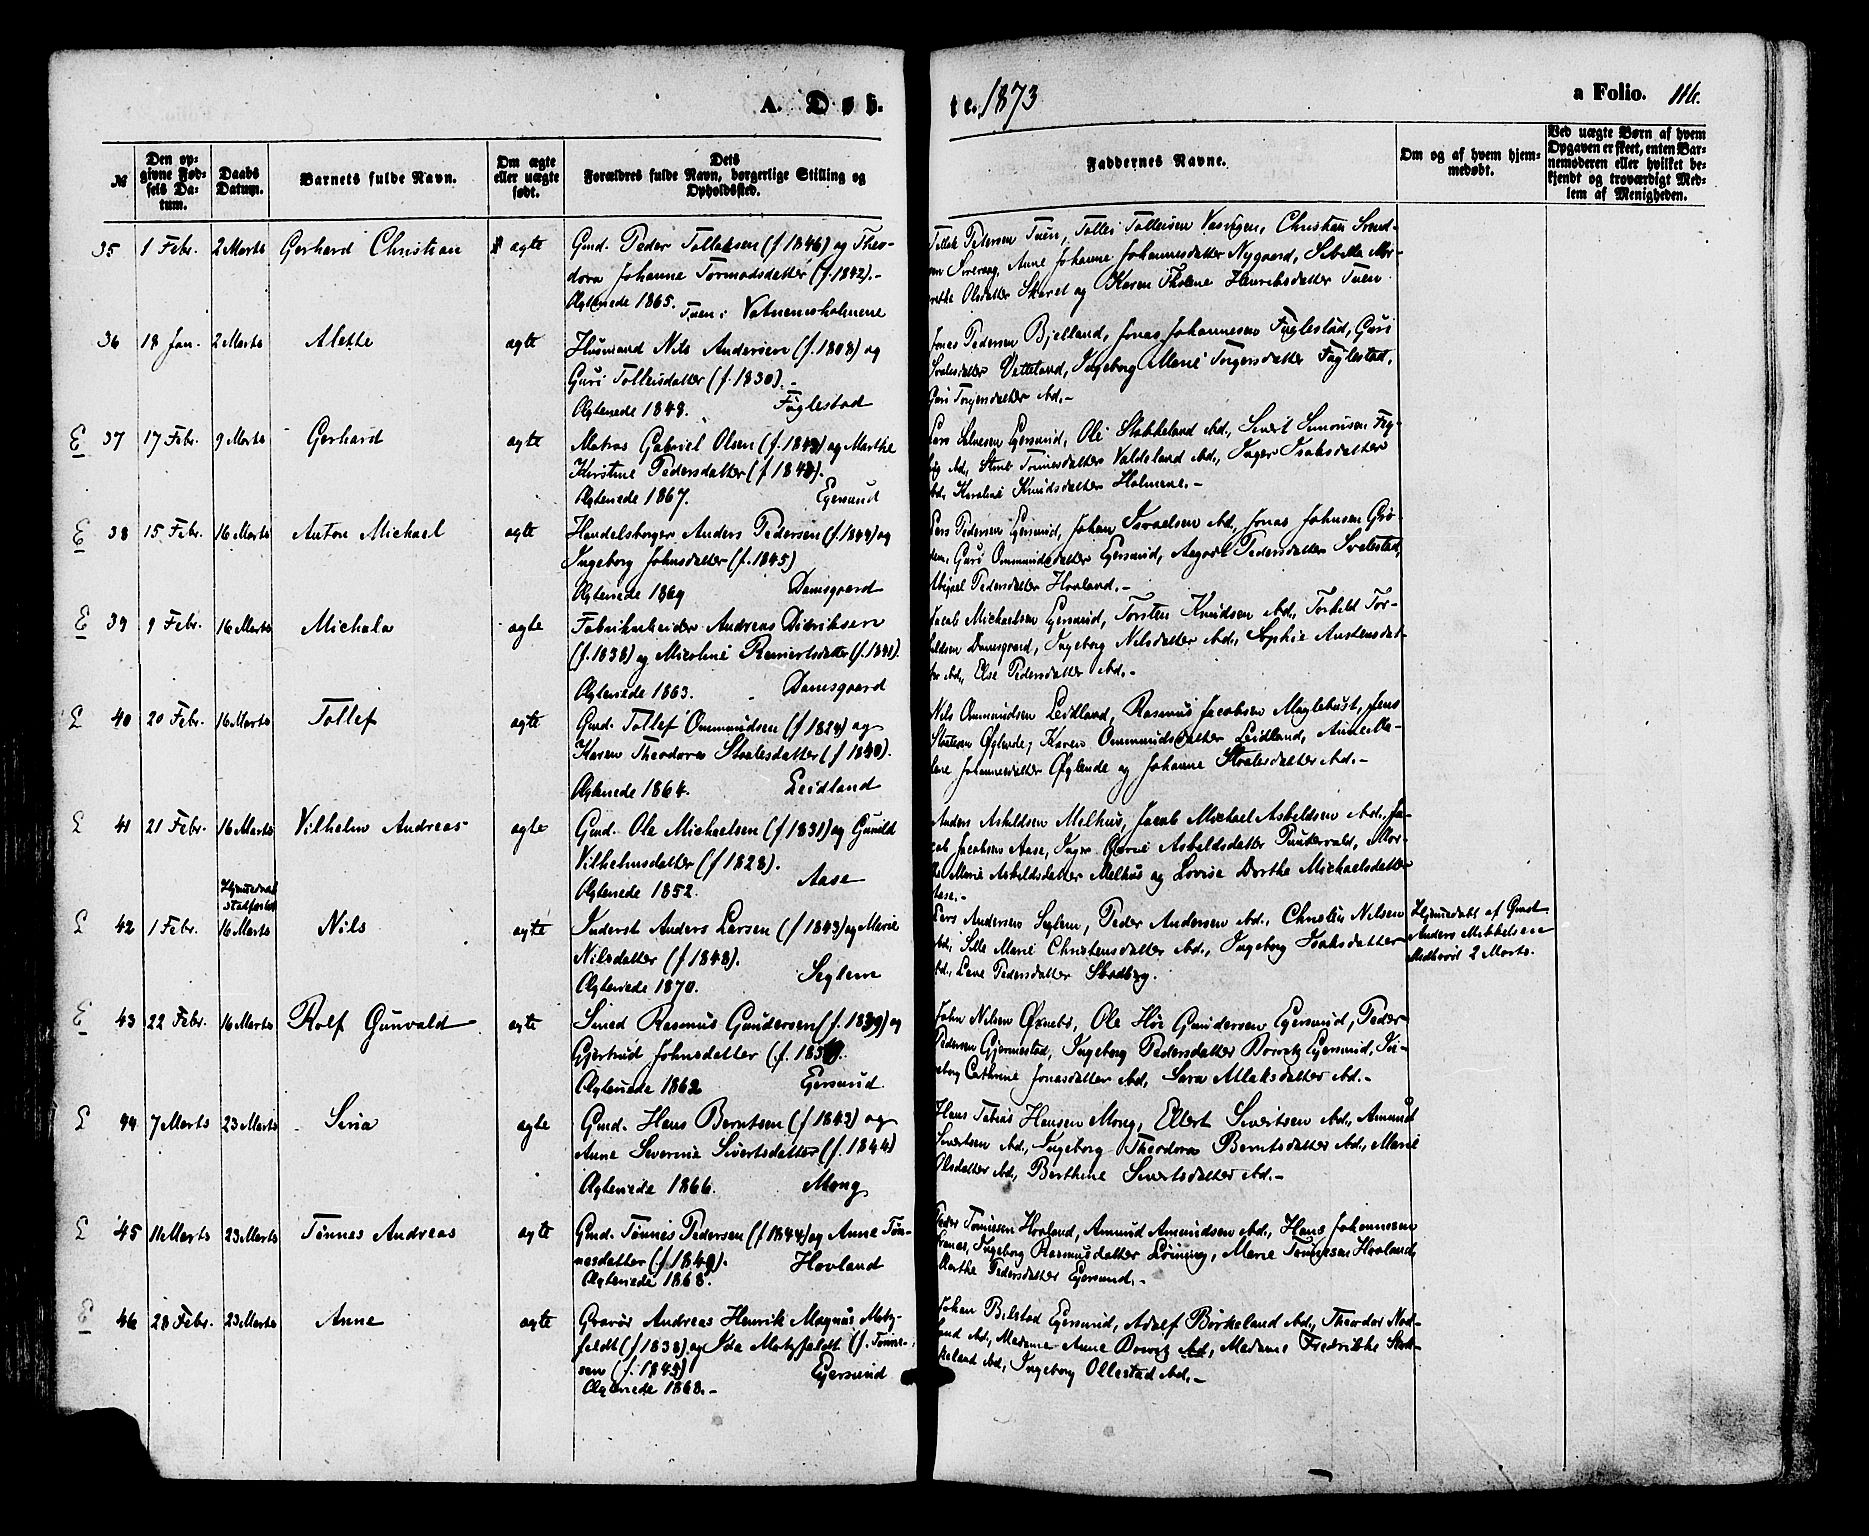 A. Døb-
te. 1873
a Folio. 116.
№
Den op-
givne Fød-
sels Da-
tum.
Daabs
Datum.
Barnets fulde Navn.
Om ægte
eller uægte
født.
Dets
Forældres fulde Navn, borgerlige Stilling og
Opholdssted.
Faddernes Navne.
Om og af hvem hjem-
medøbt.
Ved uægte Børn af hvem
Opgaven er skeet, enten Bar-
nemoderen eller hvilket be-
kjendt og troværdigt Med-
lem af Menigheden.
35 1 Febr. 2 Marts Gerhard Christian ægte
Gmd. Peder Tollaksen (f. 1846) og Theo-
dora Johanne Tormodsdatter (f. 1842).-
Ægteviede 1865. Tuen i Vatnemsholmene
Petersen Tuen, Tollef Tollefsen Christian
Anne Johanne Johannesdatter Nygaard, Sibille
Olsdatter Skaret og Karen Tholene Henriksdatter Tuen
36 18 Jan. 2 Marts Alette ægte
Husmand Nils Andersen (f. 1808) og
Guri Tolleisdatter (f. 1830).-
Ægteviede 1848. Fuglestad
Jonas Pedersen Bjelland, Jonas Johannesen Fuglestad, Guri
Svalesdatter Vatteland, Ingeborg Marie Torgersdatter Fuglestad,
Guri Torgersdatter ibd.-
E 37 17 Febr. 9 Marts Gerhard ægte
Matros Gabriel Olsen og Marthe
Kirstine Pedersdatter
Ægteviede 1867. Egersund
Lars Salvesen Egersund, Ole Stokkeland ibd., Sivert Simonsen
ibd., Tønnesdatter Valdeland ibd., Inger Isaksdatter
ibd., Karoline Knudsdatter Holmene.-
E 38 15 Febr. 16 Marts Anton Michael ægte
Handelsborger Anders Pedersen (f. 1844) og
Ingeborg Johnsdatter (f. 1845)
Ægteviede 1869 Damsgaard
Lars Pedersen Egersund, Johan Israelsen ibd., Jonas Johnsen Grø-
dem, Guri Ommundsdatter Egersund, Aagode Pedersdatter Svalestad,
Abigael Pedersdatter Hovland.-
E 39 9 Febr. 16 Marts Michala ægte
Fabrikarbeider Andreas Didriksen
(f. 1838) og Micoline Reinertsdatter (f. 1841).
Ægteviede 1863. Damsgaard
Jacob Michaelsen Egersund, Torsten Knudsen ibd., Torkild Tor-
kildsen Damsgaard, Ingeborg Nilsdatter ibd., Sophie Austensdat-
ter ibd., Else Pedersdatter ibd.-
E 40 20 Febr. 16 Marts Tollef ægte
Gmd. Tollef Ommundsen (f. 1824) og
Karen Theodora Svalesdatter (f. 1840).
Ægteviede 1864. Leidland
Nils Ommundsen Leidland, Rasmus Jacobsen Maglehust, Jens
Svalesen Øglende, Karen Ommundsdatter Leidland, Anne Ma-
lene Johannesdatter Øglende og Johanne Svalesdatter ibd.-
E 41 21 Febr. 16 Marts Vilhelm Andreas ægte
Gmd. Ole Michaelsen (f. 1831) og Gunild
Vilhelmsdatter (f. 1828).
Ægteviede 1852. Aase
Anders Askildsen Melhus, Jacob Michael Askildsen ibd., Ja-
cob Jacobsen Aase, Inger Askildsdatter Mar-
the Marie Askildsdatter Melhus og Lovise Dorthe Michaelsdatter
Aase.-
Hjemmedøbt
Stadfæstet
E 42 1 Febr. 16 Marts Nils ægte
Inderst Anders Larsen (f. 1843) og Marie
Nilsdatter (f. 1848).
Ægteviede 1870. Seglem
Lars Andersen Seglem, Peder Andersen ibd., Christen Nilsen
ibd., Sille Marie Christensdatter ibd., Ingeborg Isaksdatter
ibd., Lene Pedersdatter
Hjemmedøbt af Gmd.
Anders Mikkelsen
2 Marts.
E 43 22 Febr. 16 Marts Rolf Gunvald ægte
Smed Rasmus Gundersen (f. 1839) og
Gjertrud Johnsdatter
Ægteviede 1862 Egersund.
John Nilsen Øxnebø, Ole Høe Gundersen Egersund, Peder
Pedersen Gjermestad, Ingeborg Pedersdatter Egersund, In-
geborg Cathrine Jonasdatter ibd., Sara Atlaksdatter ibd.-
E 44 7 Marts 23 Marts Siria ægte
Gmd. Hans Berntsen (f. 1843) og
Anne Severine Sivertsdatter (f. 1844)
Ægteviede 1866. Mong
Hans Tobias Hansen Mong, Ellert Sivertsen ibd., Amund
Sivertsen ibd., Ingeborg Theodora Berntsdatter ibd., Marie
Olsdatter ibd., Berthine Sivertsdatter ibd.-
E 45 11 Marts 23 Marts Tønnes Andreas ægte
Gmd. Tønnes Pedersen (f. 1844) og Anne Tøn-
nesdatter (f. 1849). Hovland
Ægteviede 1868.
Peder Tønnesen Hovland, Amund Amundsen ibd., Hans Johannesen
Ingeborg Rasmusdatter Marie Tønnesen Hovland,
Marthe Pedersdatter Egersund.-
E 46 28 Febr. 23 Marts Anne ægte
Gravør Andreas Henrik Magnus Motz-
feldt (f. 1838) og Ida Motzfeldt (f. Tønne-
sen (f. 1845) Egersund
Ægteviede 1868.-
Johan Bilstad Egersund, Adolf Birkeland ibd., Theodor
ibd., Madame Anne ibd., Madame Fredrikke Stok-
keland ibd., Ingeborg Ollestad ibd.-